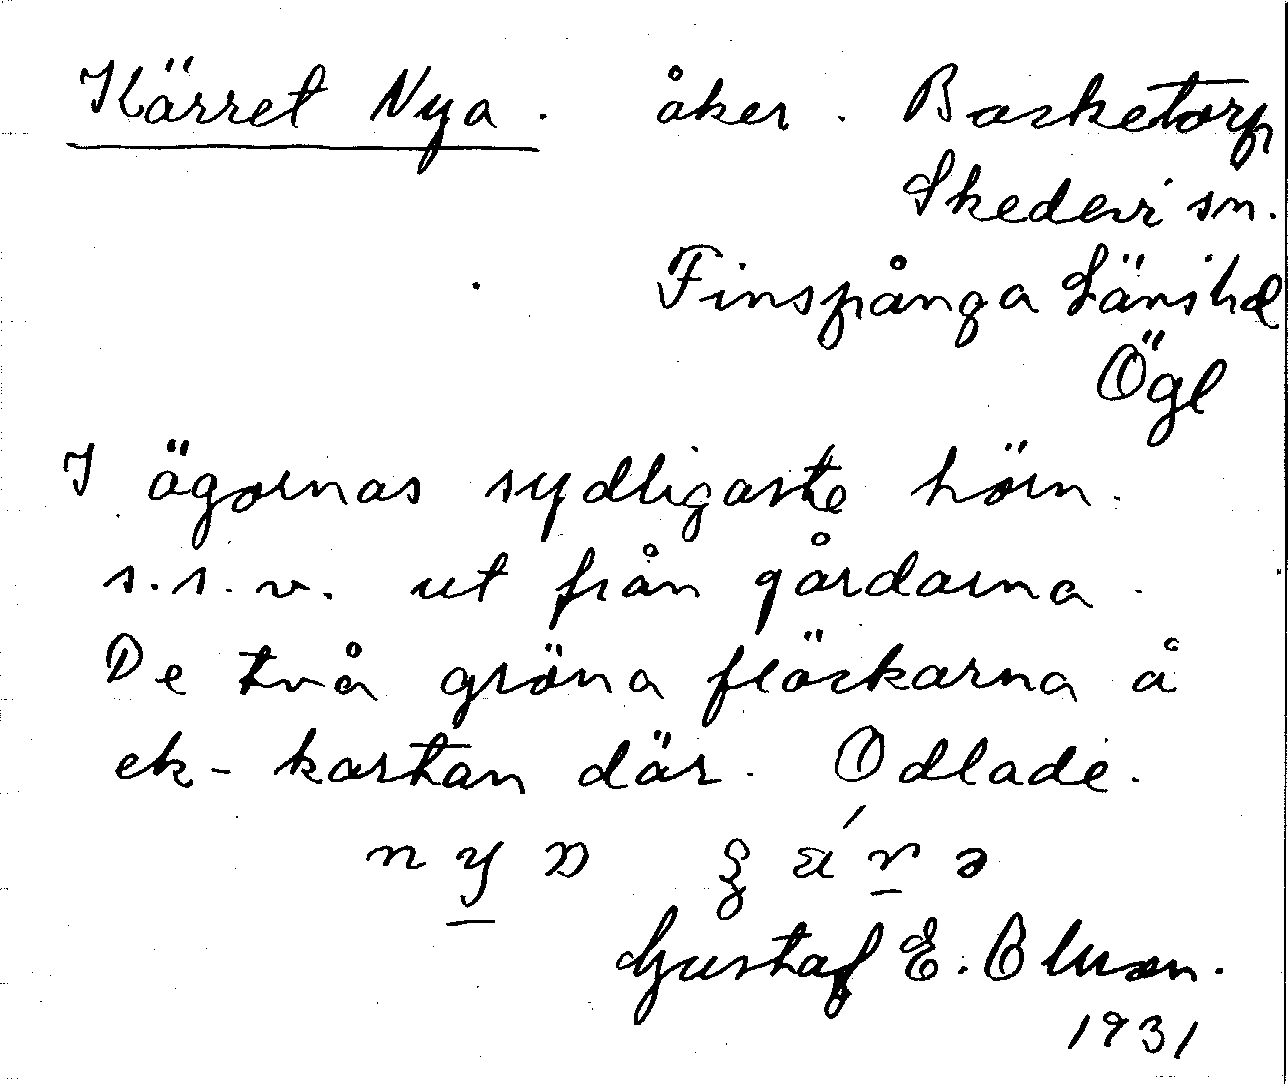 Kärret Nya. åker. Backetorp
Skedevi sn.
Finspånga Länshd
Ögl
I ägornas sydligaste hörn.
s.s.v. ut från gårdarna.
De två gröna fläckarna å
ek-kartan där. Odlade.
Gustaf E. Olsson.
1931